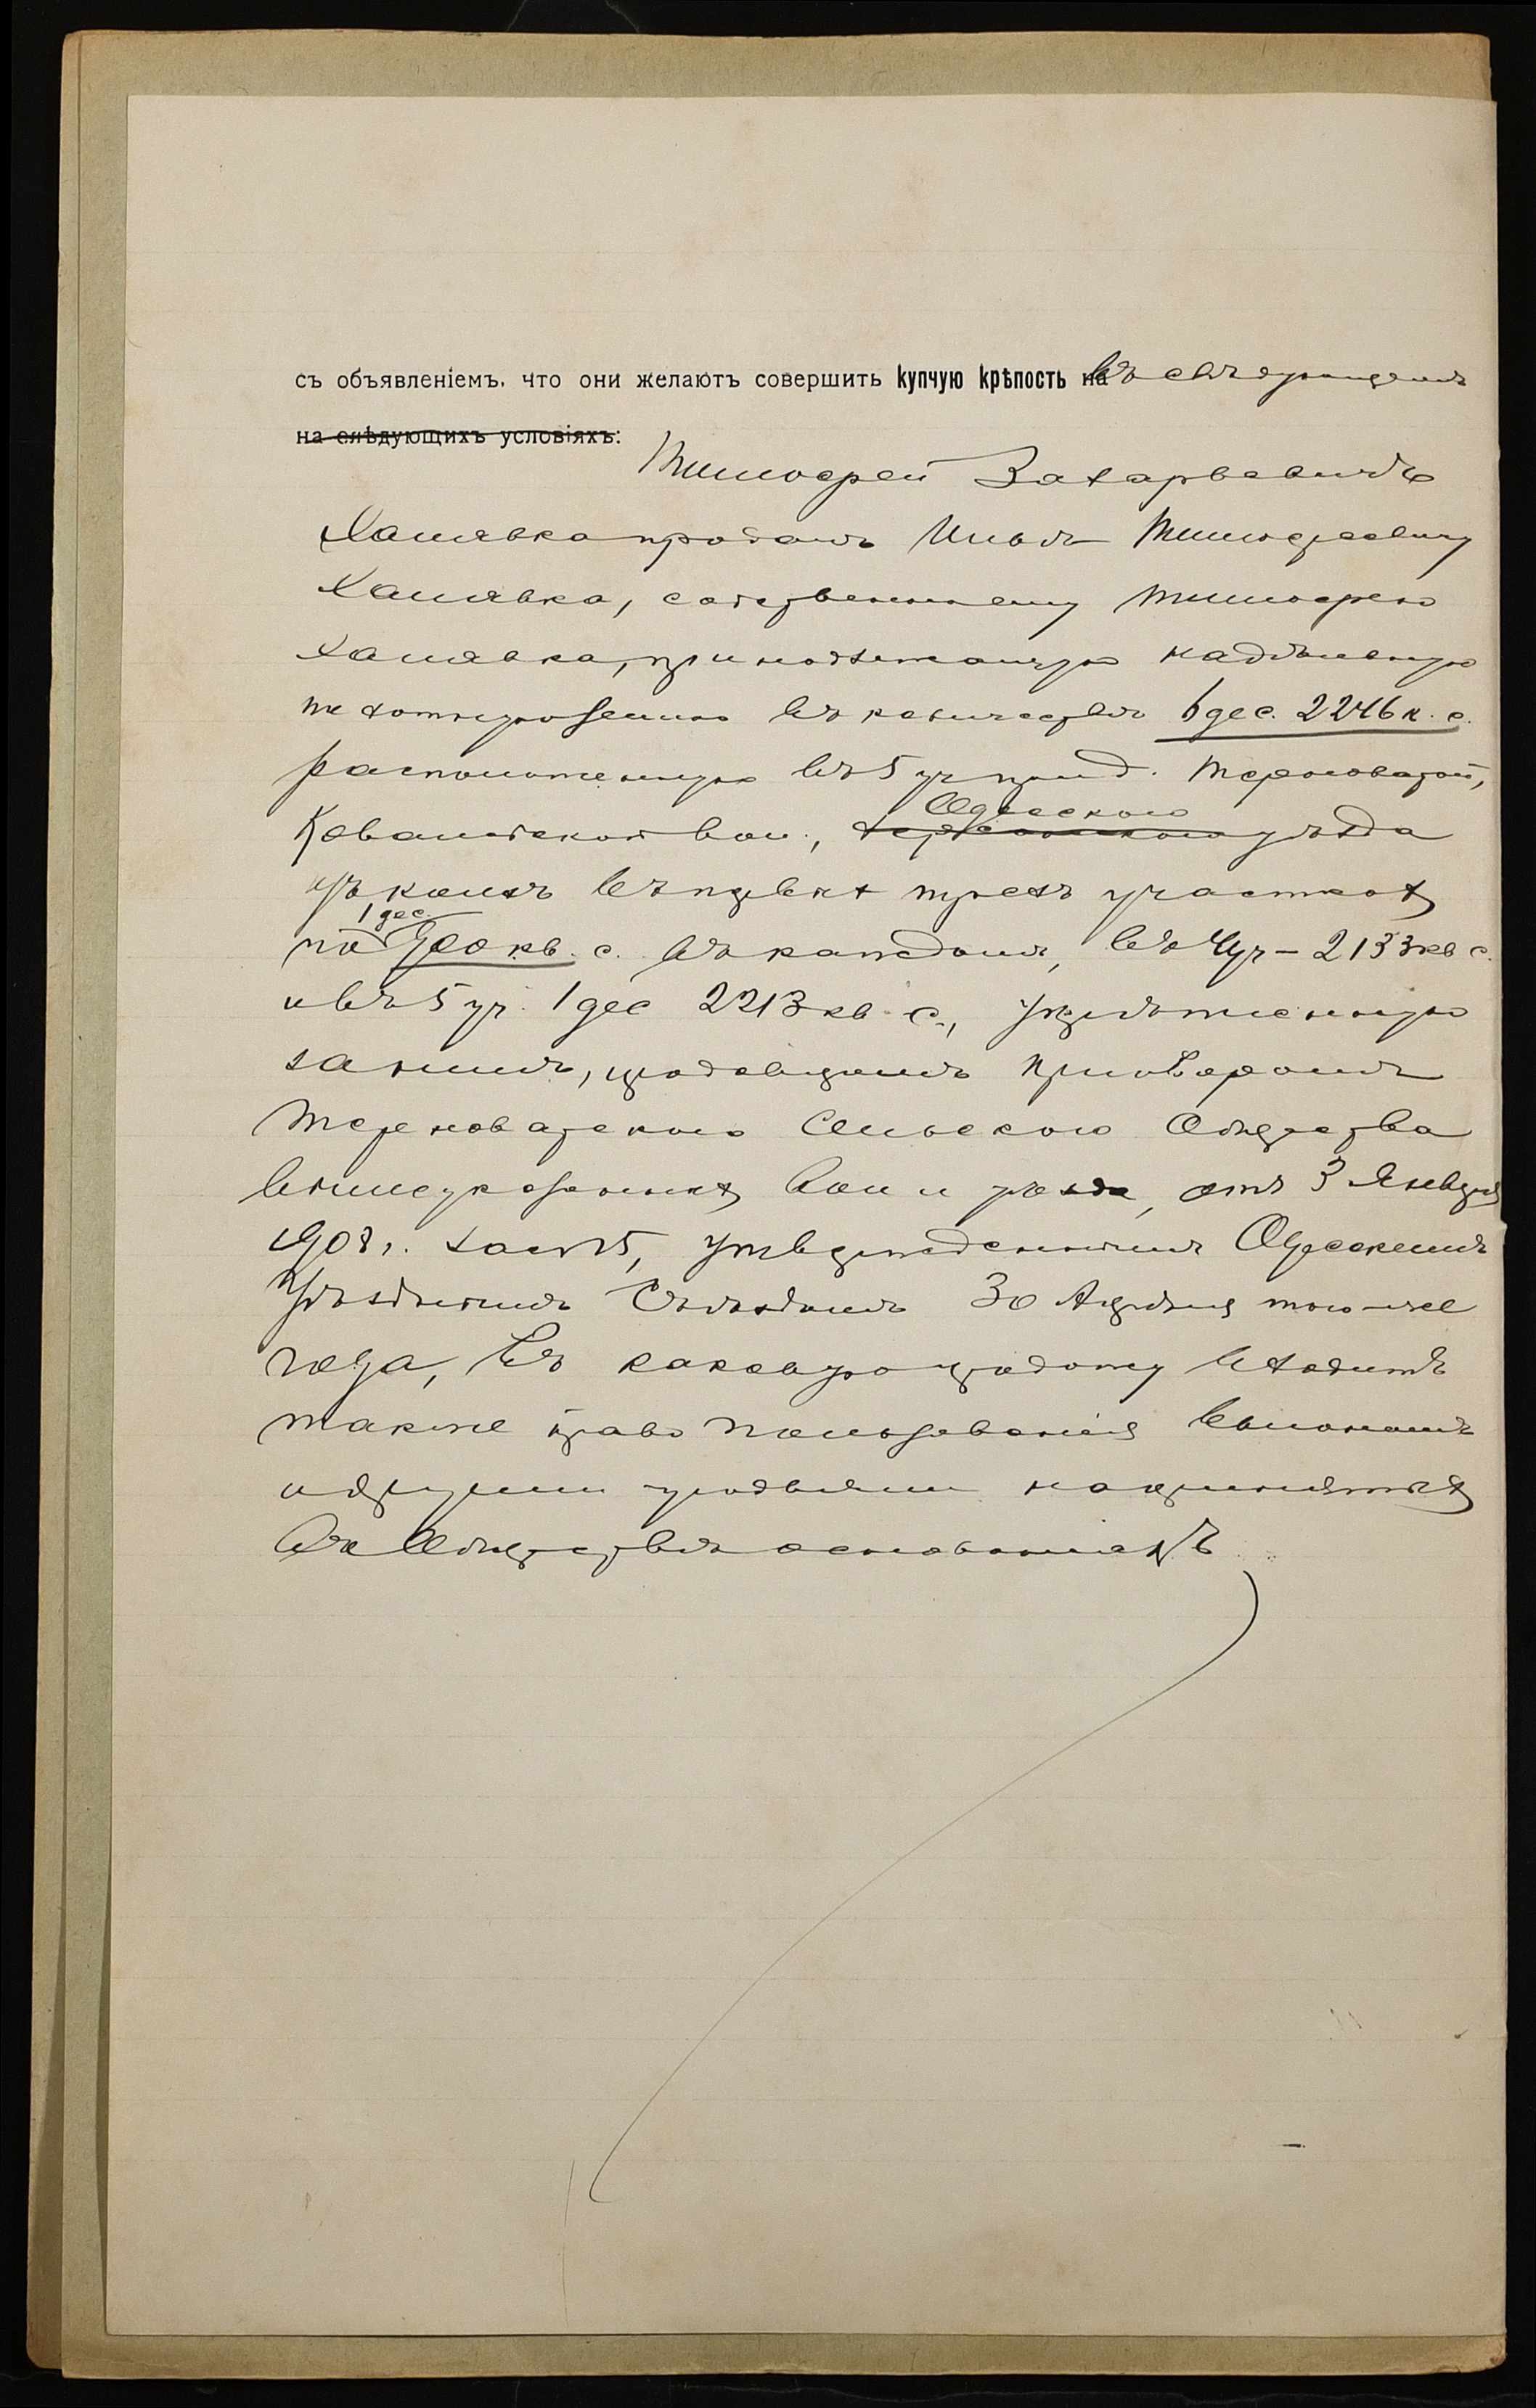 съ объявленіемъ, что они желаютъ совершить купчую крѣпость на въ слѣдующемъ
на слѣдующихъ условіяхъ:
Тимофей Захарьевичъ
Халявка продалъ Ильѣ Тимофеевичу
Халявка, собственную Тимофею
Халявка, принадлежащую надѣльную
землю въ количествѣ 6 дес. 2246 к. с.
расположенную въ 5 уч при д. Терноватой,
Ковалевской вол., Херсонскаго Одесскаго уѣзда
изъ коихъ въ первыхъ трехъ участкахъ
по 1 дес. 700 кв. с. въ каждомъ, въ 4 уч – 2133 кв с.
и въ 5 уч. 1 дес 2213 кв. с., укрѣпленную
за нимъ, продавцомъ приговоромъ
Терноватскаго Сельскаго Общества
вышеуказанныхъ вол и уѣзда, отъ 3 Января
1908 г. за № 5, утвержденнымъ Одесскимъ
Уѣзднымъ Съѣздомъ 30 Апрѣля того-же
года, въ каковую продажу входитъ
также право пользованія выгономъ
и другими угодьями на принятыхъ
въ Обществѣ основаніяхъ